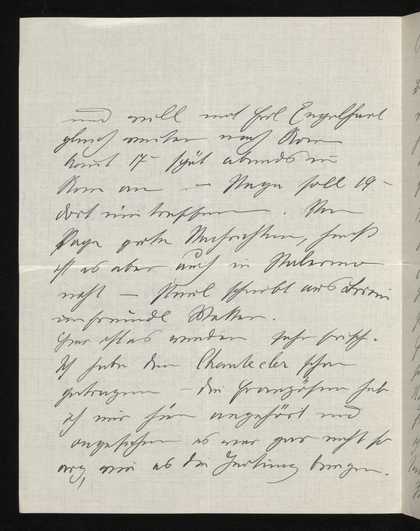 und will mit Frl Engelhart
gleich weiter nach Rom
kommt 17- spät abends in
Rom an — Papa soll 19-
dort eintreffen. Von
Papa gute Nachrichten, sonst
ist es aber auch in Palermo
naß — Karl schreibt aus
unfreundl Wetter.
Hier ist es wieder sehr frisch.
Ich habe den Chantecler schon
getragen — die Französin hab
ich mir hier angehört und
angesehen es war gar nicht so
arg, wie es die Zeitung bringen.